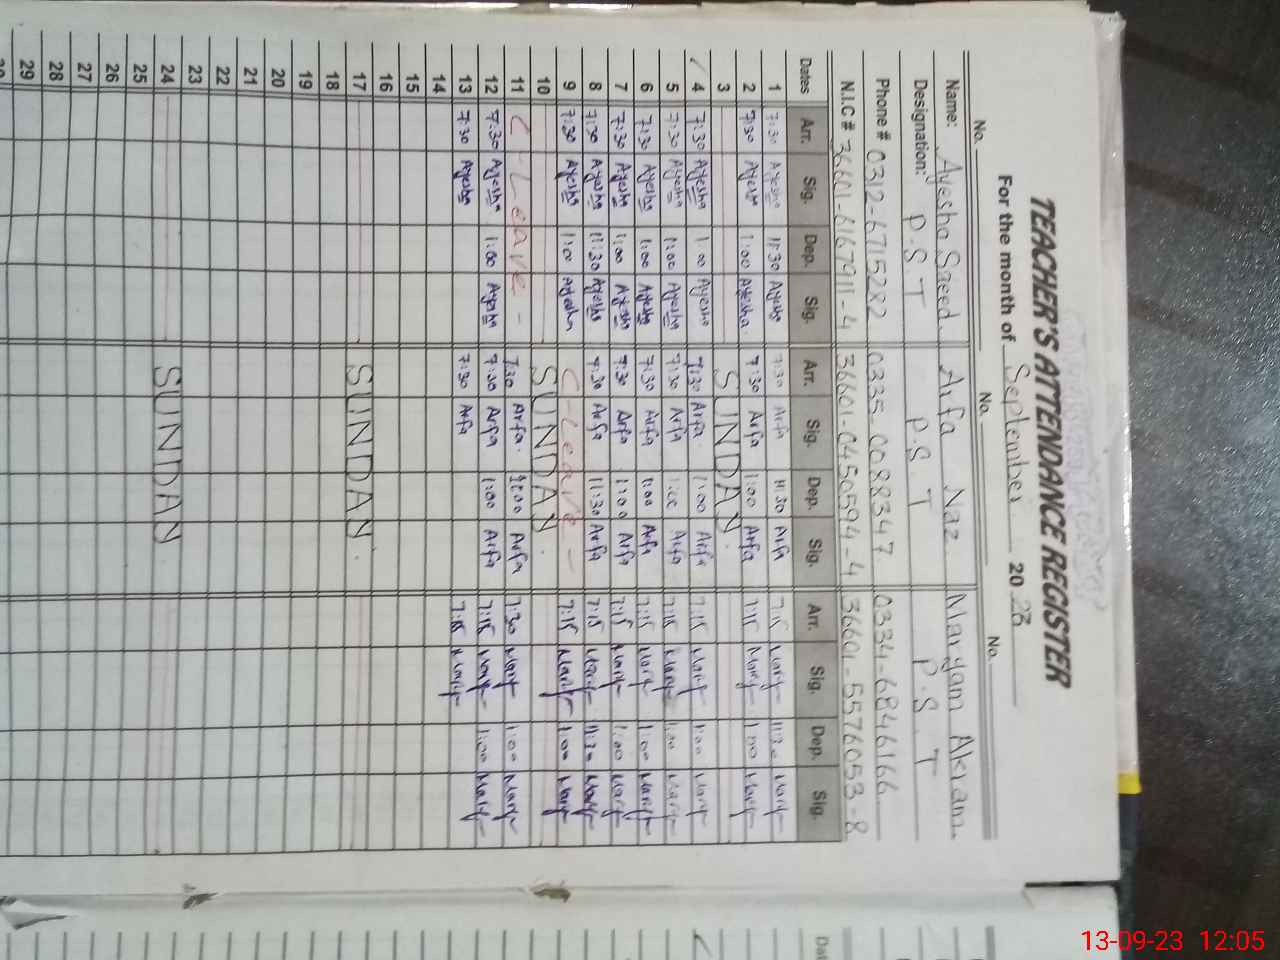 TEACHER'S ATTENDANCE REGISTER
For the month of September 2023
No. No. No.
Name: Ayesha Saeed Arfa Naz Maryam Akram
Designation: P.S.T P.S.T P.S.T
Phone # 0312-6715282 0335-0088347 0334-6846166
N.I.C # 36601-6167911-4 36601-0450594-4 36601-5576053-8
Dates Arr. Sig. Dep. Sig. Arr. Sig. Dep. Sig. Arr. Sig. Dep. Sig.
1 7:30 Ayesha 11:30 Ayesha 7:30 Arfa 11:30 Arfa 7:15 Mary 11:30 Mary
2 7:30 Ayesha 1:00 Ayesha 7:30 Arfa 1:00 Arfa 7:15 Mary 1:00 Mary
3 SUNDAY.
4 7:30 Ayesha 1:00 Ayesha 7:30 Arfa 1:00 Arfa 7:15 Mary 1:00 Mary
5 7:30 Ayesha 1:00 Ayesha 7:30 Arfa 1:00 Arfa 7:15 Mary 1:00 Mary
6 7:30 Ayesha 1:00 Ayesha 7:30 Arfa 1:00 Arfa 7:15 Mary 1:00 Mary
7 7:30 Ayesha 1:00 Ayesha 7:30 Arfa 1:00 Arfa 7:15 Mary 1:00 Mary
8 7:30 Ayesha 11:30 Ayesha 7:30 Arfa 11:30 Arfa 7:15 Mary 11:30 Mary
9 7:30 Ayesha 1:00 Ayesha C-Leave- 7:15 Mary 1:00 Mary
10 SUNDAY.
11 C-Leave- 7:30 Arfa. 1:00 Arfa 7:30 Mary 1:00 Mary
12 7:30 Ayesha 1:00 Ayesha 7:30 Arfa 1:00 Arfa 7:15 Mary 1:00 Mary
13 7:30 Ayesha 7:30 Arfa 7:15 Mary
14
15
16
17 SUNDAY.
18
19
20
21
22
23
24 SUNDAY
25
26
27
28
29
30
13-09-23 12:05